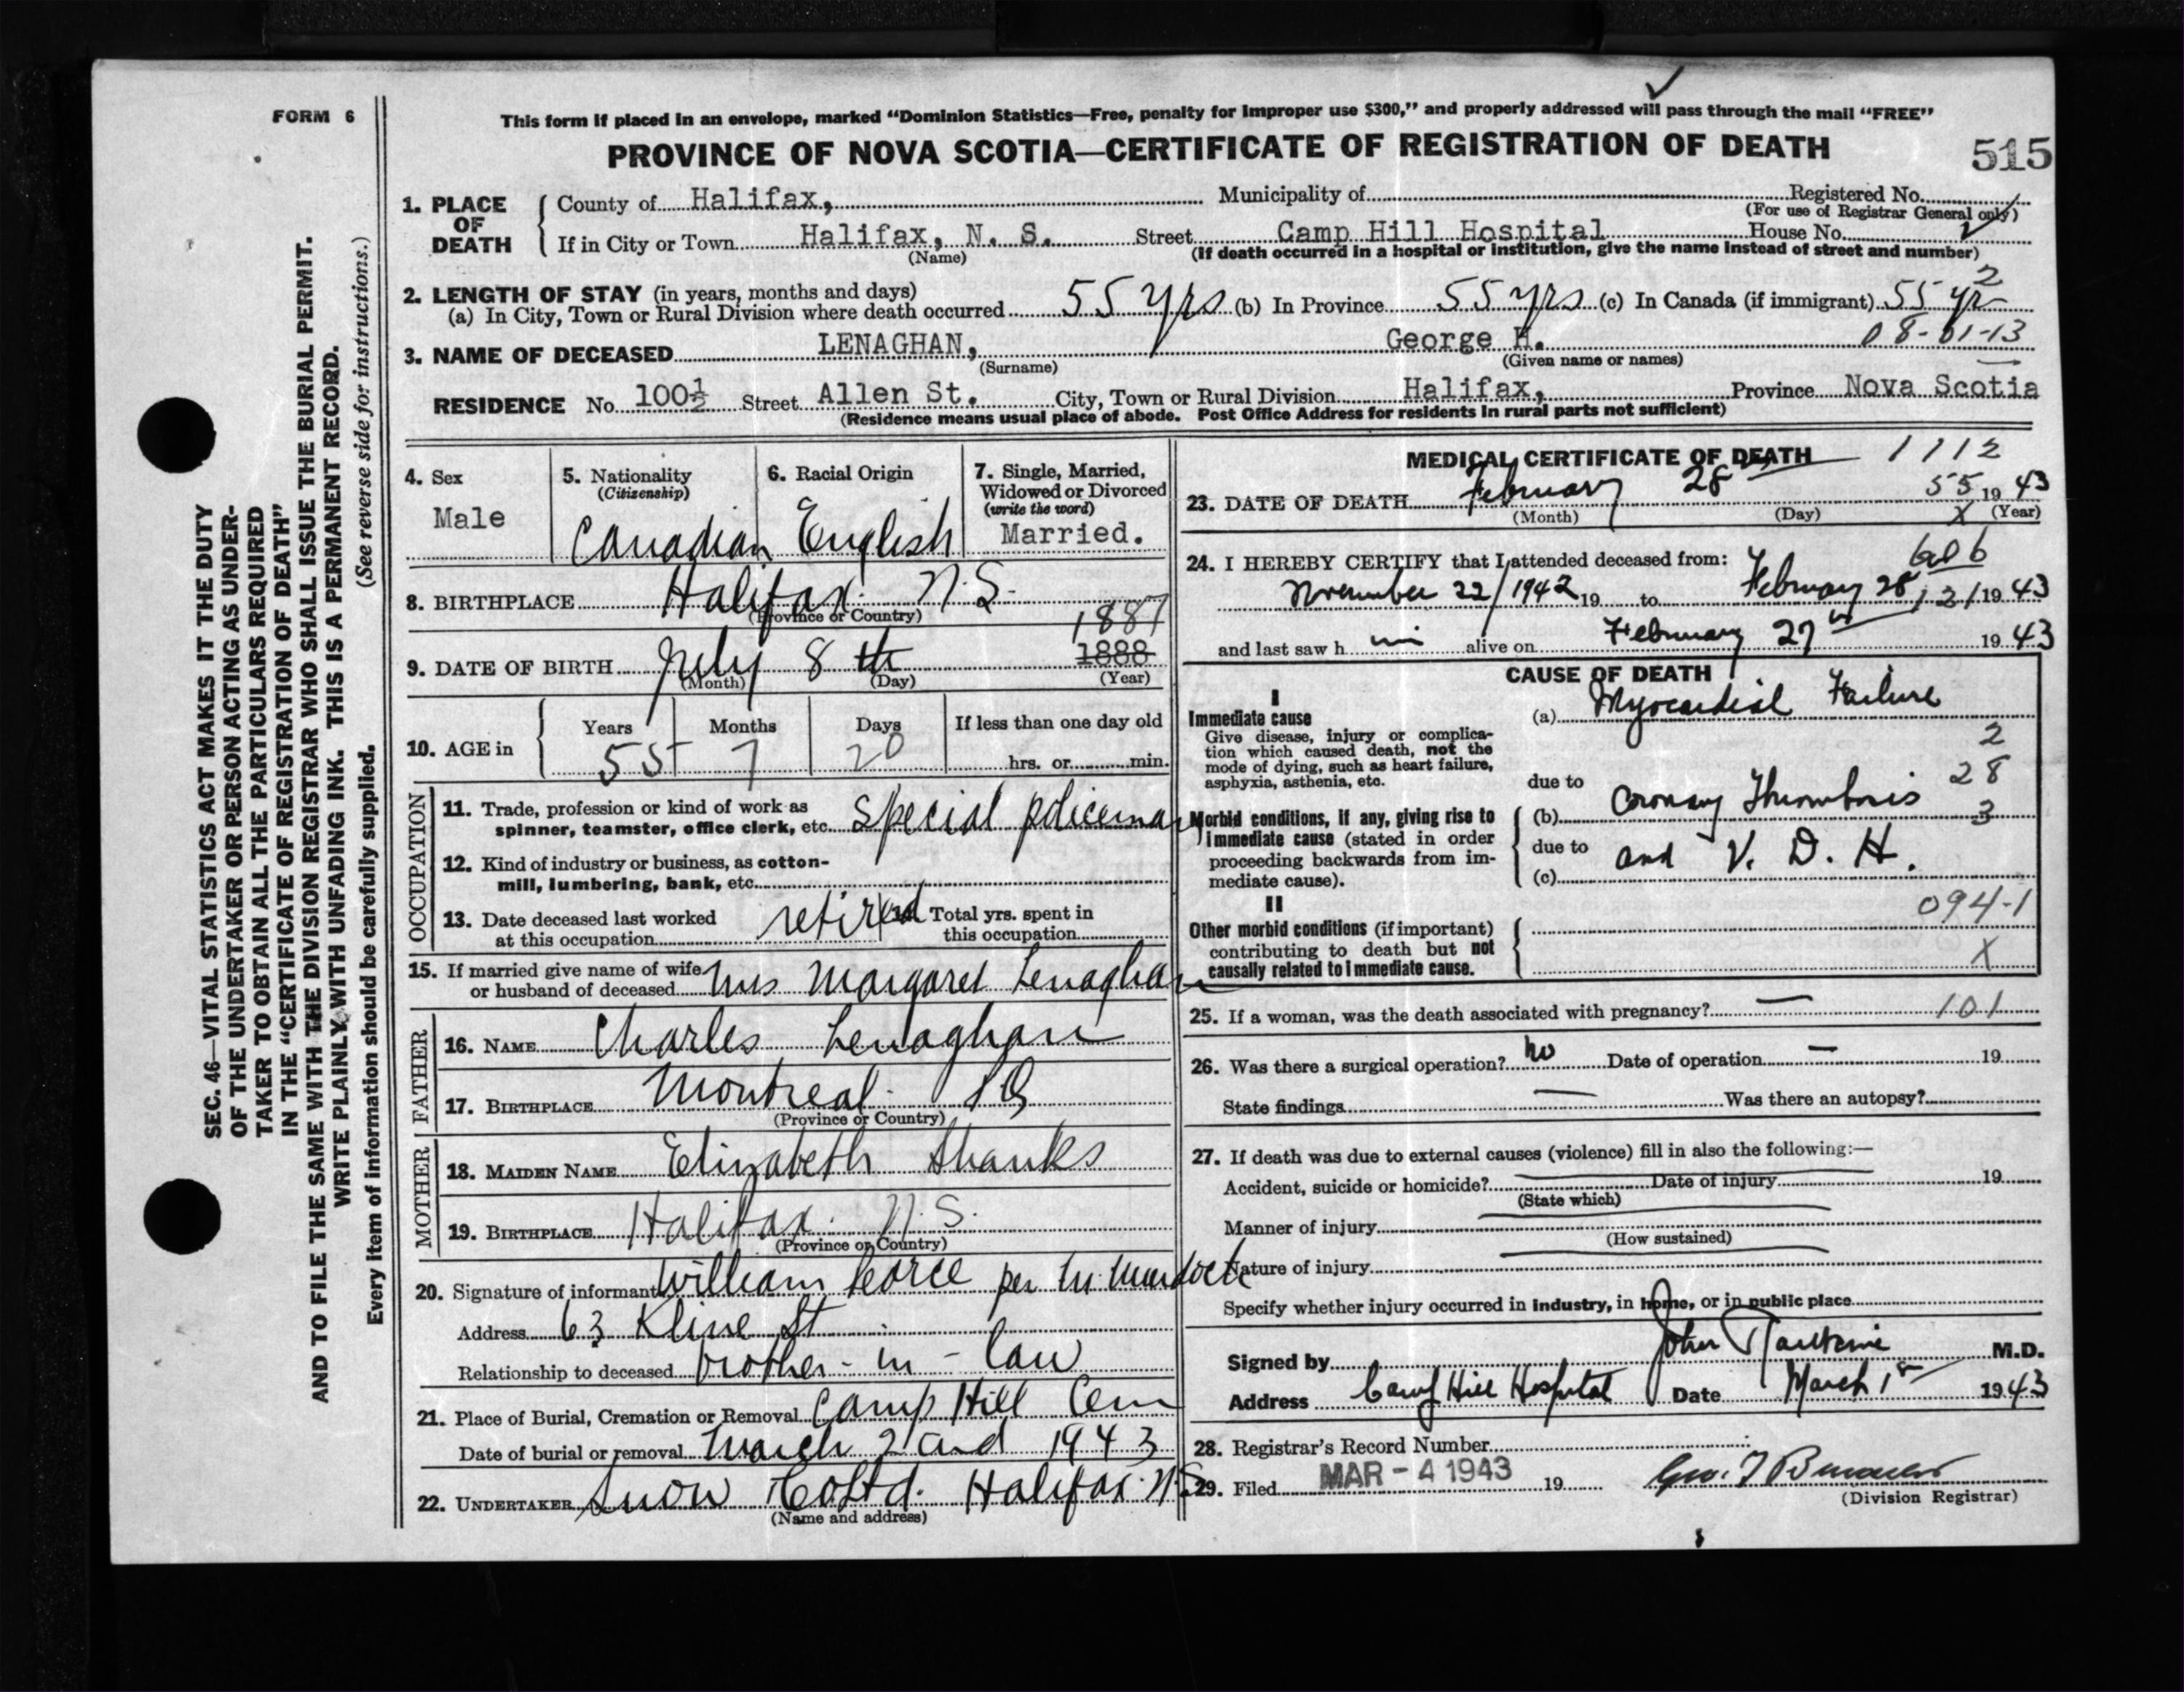 FORM 6
This form if placed in an envelope, marked “Dominion Statistics—Free, penalty for improper use $300,” and properly addressed will pass through the mail “FREE”
PROVINCE OF NOVA SCOTIA—CERTIFICATE OF REGISTRATION OF DEATH
515
SEC. 46—VITAL STATISTICS ACT MAKES IT THE DUTY
OF THE UNDERTAKER OR PERSON ACTING AS UNDER-
TAKER TO OBTAIN ALL THE PARTICULARS REQUIRED
IN THE “CERTIFICATE OF REGISTRATION OF DEATH”
AND TO FILE THE SAME WITH THE DIVISION REGISTRAR WHO SHALL ISSUE THE BURIAL PERMIT.
WRITE PLAINLY WITH UNFADING INK. THIS IS A PERMANENT RECORD.
Every item of information should be carefully supplied. (See reverse side for instructions.)
1. PLACE OF DEATH
County of Halifax, Municipality of Registered No.
(For use of Registrar General only)
If in City or Town Halifax, N. S. Street Camp Hill Hospital House No.
(Name) (If death occurred in a hospital or institution, give the name instead of street and number)
2. LENGTH OF STAY (in years, months and days) 2
(a) In City, Town or Rural Division where death occurred 55 yrs (b) In Province 55 yrs (c) In Canada (if immigrant) 55 yr
3. NAME OF DECEASED LENAGHAN, George H. 08-01-13
(Surname) (Given name or names)
RESIDENCE No. 100½ Street Allen St. City, Town or Rural Division Halifax, Province Nova Scotia
(Residence means usual place of abode. Post Office Address for residents in rural parts not sufficient)
4. Sex
Male
5. Nationality
(Citizenship)
Canadian
6. Racial Origin
English
7. Single, Married,
Widowed or Divorced
(write the word)
Married.
8. BIRTHPLACE Halifax. N.S.
(Province or Country)
1887
9. DATE OF BIRTH July 8 th 1888
(Month) (Day) (Year)
10. AGE in
Years Months Days If less than one day old
55 7 20 hrs. or min.
OCCUPATION
11. Trade, profession or kind of work as
spinner, teamster, office clerk, etc. special policeman
12. Kind of industry or business, as cotton-
mill, lumbering, bank, etc.
13. Date deceased last worked
at this occupation retired
14. Total yrs. spent in
this occupation
15. If married give name of wife
or husband of deceased Mrs Margaret Lenaghan
FATHER
16. NAME Charles Lenaghan
17. BIRTHPLACE Montreal. PQ
(Province or Country)
MOTHER
18. MAIDEN NAME Elizabeth Shanks
19. BIRTHPLACE Halifax. N.S.
(Province or Country)
20. Signature of informant William Pearce per M. Murdock
Address 63 Kline St
Relationship to deceased brother-in-law
21. Place of Burial, Cremation or Removal Camp Hill Cem
Date of burial or removal March 2nd 1943
22. UNDERTAKER Snow Co Ltd. Halifax. N.S.
(Name and address)
MEDICAL CERTIFICATE OF DEATH 1112
23. DATE OF DEATH February 28th 55 1943
(Month) (Day) X (Year)
24. I HEREBY CERTIFY that I attended deceased from:
November 22/1942 19 to February 28 121 1943
and last saw h im alive on February 27th 1943
CAUSE OF DEATH
I
Immediate cause
Give disease, injury or complica-
tion which caused death, not the
mode of dying, such as heart failure,
asphyxia, asthenia, etc.
(a) Myocardial Failure
2
28
3
due to
Morbid conditions, if any, giving rise to
immediate cause (stated in order
proceeding backwards from im-
mediate cause).
(b) Coronary Thrombosis
due to and V. D. H.
(c)
II
Other morbid conditions (if important)
contributing to death but not
causally related to immediate cause.
094-1
X
25. If a woman, was the death associated with pregnancy? — 101
26. Was there a surgical operation? no Date of operation — 19
State findings — Was there an autopsy?
27. If death was due to external causes (violence) fill in also the following:—
Accident, suicide or homicide? Date of injury 19
(State which)
Manner of injury
(How sustained)
Nature of injury
Specify whether injury occurred in industry, in home, or in public place
Signed by John M.D.
Address Camp Hill Hospital Date March 1st 1943
28. Registrar's Record Number
29. Filed MAR - 4 1943 19
(Division Registrar)